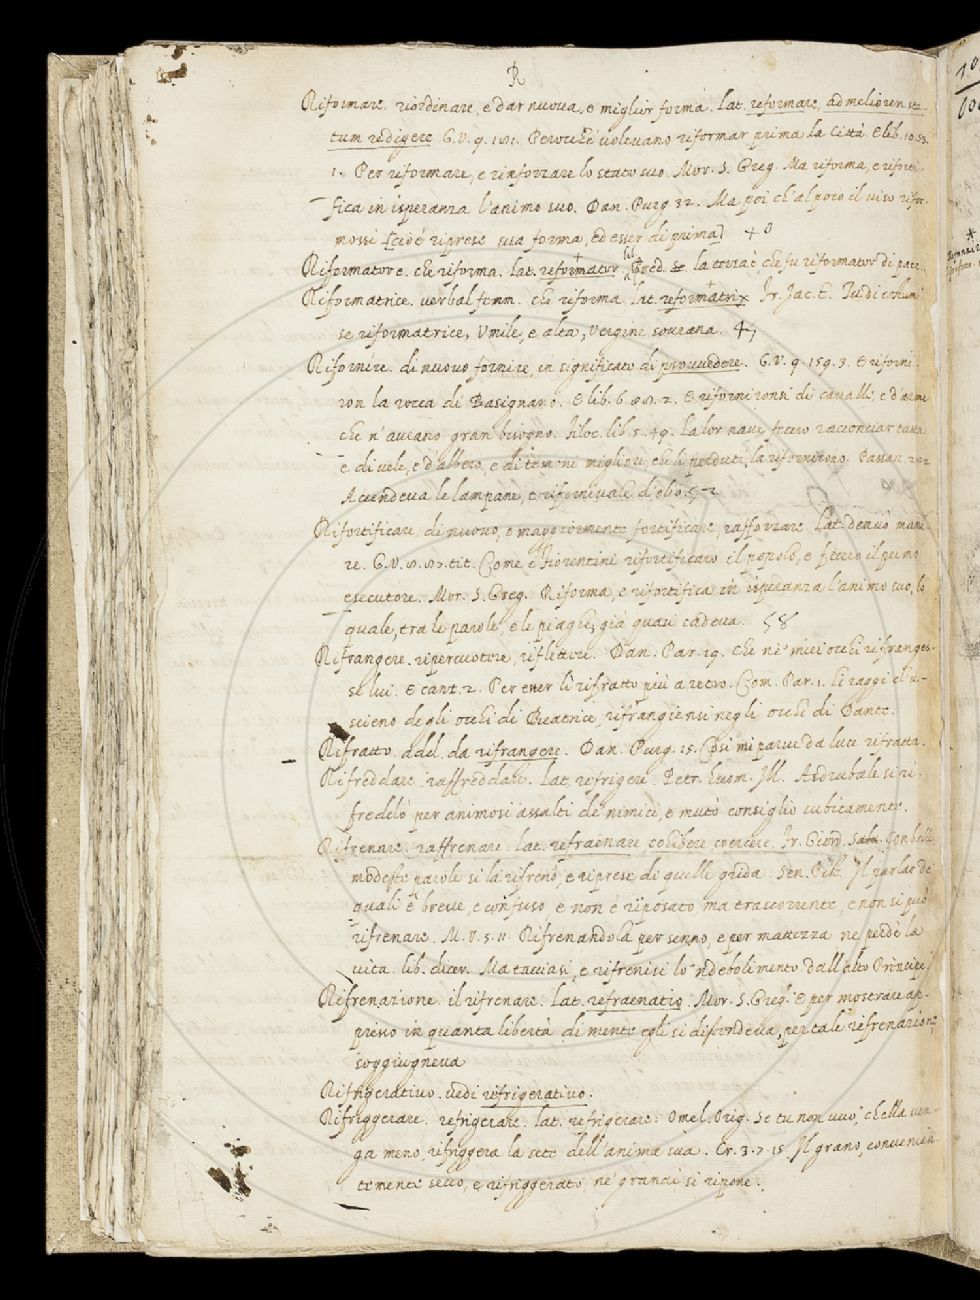 R
Riformare. riordinare, e dar nuoua, e miglior forma. Lat. reformare, ad meliorem sta-
tum redigere G.V. 9. Perochè uoleuano riformar prima la Città. E lib. 10.
1. Per riformare, e rinforzare lo stato suo. Mor. S. Greg. Ma riforma, e riforti-
fica in isperanza l'animo suo. Dan. Purg 32. Ma poi ch'al poco il uiso rifor-
mossi [cioè riprese sua forma, ed esser di prima]
Riformatore. che riforma. Lat. reformator. la terrae, che fu riformator di pace.
Riformatrice. uerbal femm. che riforma lat. reformatrix Fr. Jac. T.
se riformatrice, Vmile, e alta, Vergine sourana.
Rifornire. di nuouo fornire, in significato di prouuedere. G.V. 9. 159. 3. E riforni-
ron la rocca di Basignano. E lib. 6. 2. E rifornironsi di caualli, e d'arme
che n'aueano gran bisogno. Filoc. lib. 5. 49. La lor naue fecero racconciar tutta
e di uele, e d'albero, e di temoni migliori, che li perduti, la rifornirono. Passan.
Accendeua le lampane, e riforniuale d'olio.
Rifortificare di nuouo, o maggiormente fortificare, rafforzare. Lat. denuò muni-
re. G.V. tit. Come e Fiorentini rifortificaro il popolo, e fecero il primo
esecutore. Mor. S. Greg. Riforma, e rifortifica in isperanza l'animo suo, lo
quale, tra le parole, e le piaghe, già quasi cadeua. 58
Rifrangere. ripercuotere, riflettere. Dan. Par. 19. che ne' miei occhi rifranges-
se lui. E cant. 2. Per esser lì rifratto più a retro. Com. Par. 1. Li raggi ch'u-
scieno degli occhi di Beatrice, rifrangiensi negli occhi di Dante.
Rifratto. add. da rifrangere. Dan. Purg. 15. Così mi parue da luce rifratta.
Rifreddare. raffreddare. Lat. refrigere Petr. huom. Ill. Asdrubale si ri-
freddò per animosi assalti de' nimici, e mutò consiglio subitamente.
Rifrenare. raffrenare. lat. refraenare, cohibere coercere. Fr. Giord. Salu. Con belle
modeste parole si la rifrenò, e riprese di quelle grida. Sen. Pist. Il parlar de'
quali è breue, e confuso, e non è riposato, ma trascorrente, e non si può
rifrenare. M.V. 5. 11. Rifrenandola per senno, e per mattezza ne perdè la
uita. lib. dicer. Ma tacciasi, e rifrenisi lo 'ndebolimento dall'alto Principe.
Rifrenazione. il rifrenare. Lat. refraenatio. Mor. S. Greg. E per mostrare ap-
presso in quanta libertà di mente egli si difendeua, per tale rifrenazione
soggiugneua
Rifrigeratiuo. uedi refrigeratiuo.
Rifriggerare. refrigerare. lat. refrigerare. Omel. Orig. Se tu non uuo', ch'ella uen-
ga meno, rifriggera la sete dell'anima sua. Cr. 3. 7. 15. Il grano, conuenien-
temente secco, e rifriggerato, ne' granai si ripone.